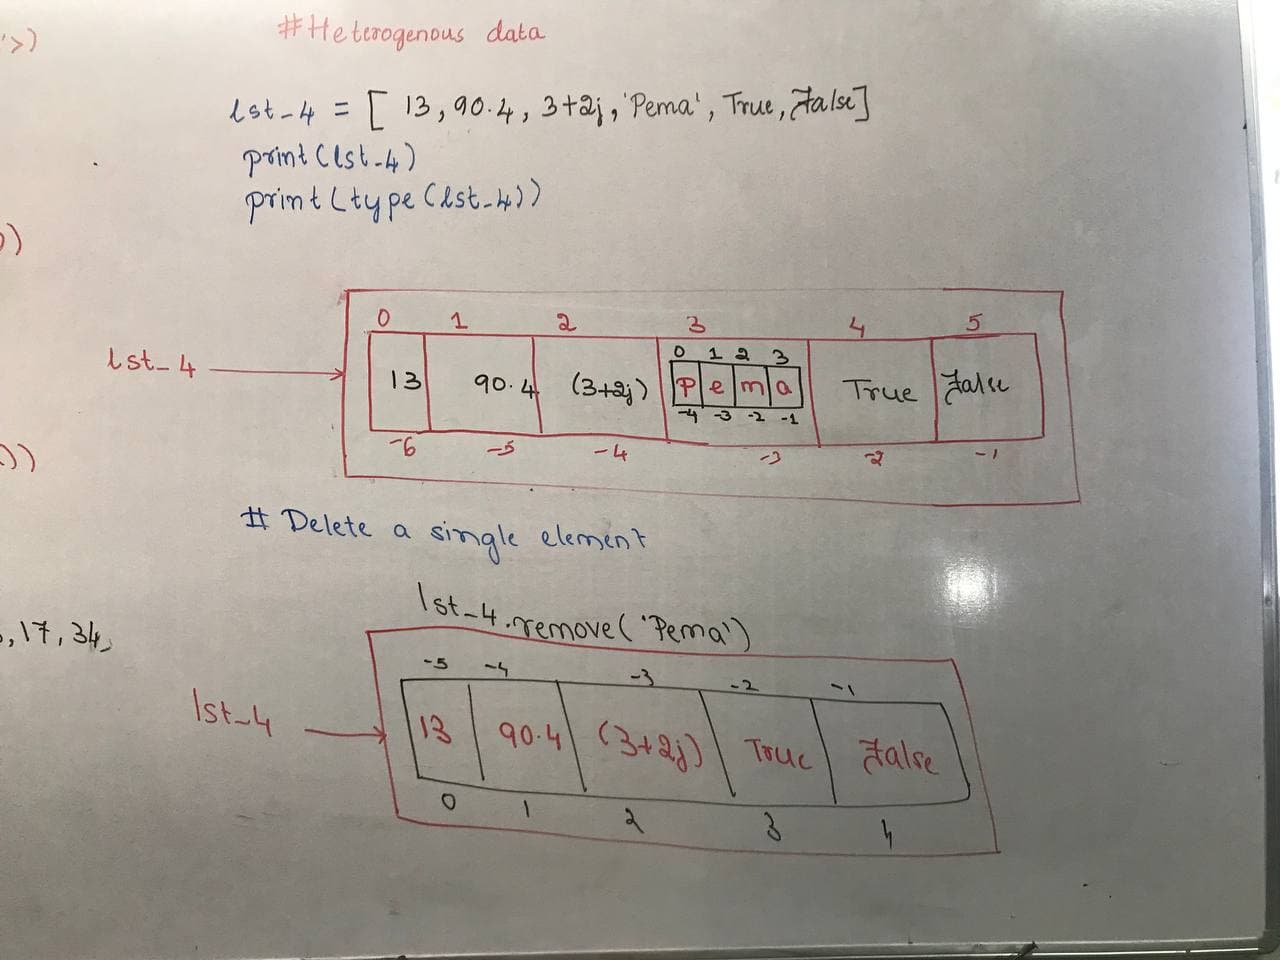 '>)
#Heterogenous data
lst_4 = [ 13, 90.4, 3+2j, 'Pema', True, False]
print(lst_4)
print(type(lst_4))
))
0 1 2 3 4 5
0 1 2 3
lst_4
13 90.4 (3+2j) P e m a True False
-4 -3 -2 -1
-6 -5 -4 -3 -2 -1
))
# Delete a single element
lst_4.remove('Pema')
, 17, 34,
-5 -4 -3 -2 -1
lst_4
13 90.4 (3+2j) True False
0 1 2 3 4